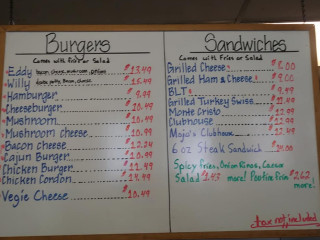 Burgers
Comes with Fries or Salad
Eddy bacon, cheese, mushroom $13.49
Willy $15.49
Hamburger $9.99
Cheeseburger $10.49
Mushroom $10.49
Mushroom cheese $10.99
Bacon cheese $12.24
Cajun Burger $10.99
Chicken Burger $11.49
Chicken Cordon $14.99
Vegie Cheese $10.49
Sandwiches
Comes with Fries or Salad
Grilled Cheese $6.00
Grilled Ham & Cheese $8.00
BLT $9.99
Grilled Turkey Swiss $11.49
Monte Cristo $12.99
Clubhouse $12.99
Mojo's Clubhouse $12.49
6 oz Steak Sandwich $14.00
Spicy Fries, Onion Rings, Caesar
Salad $1.43 more! Poutine Fries $2.62
more!
tax not included